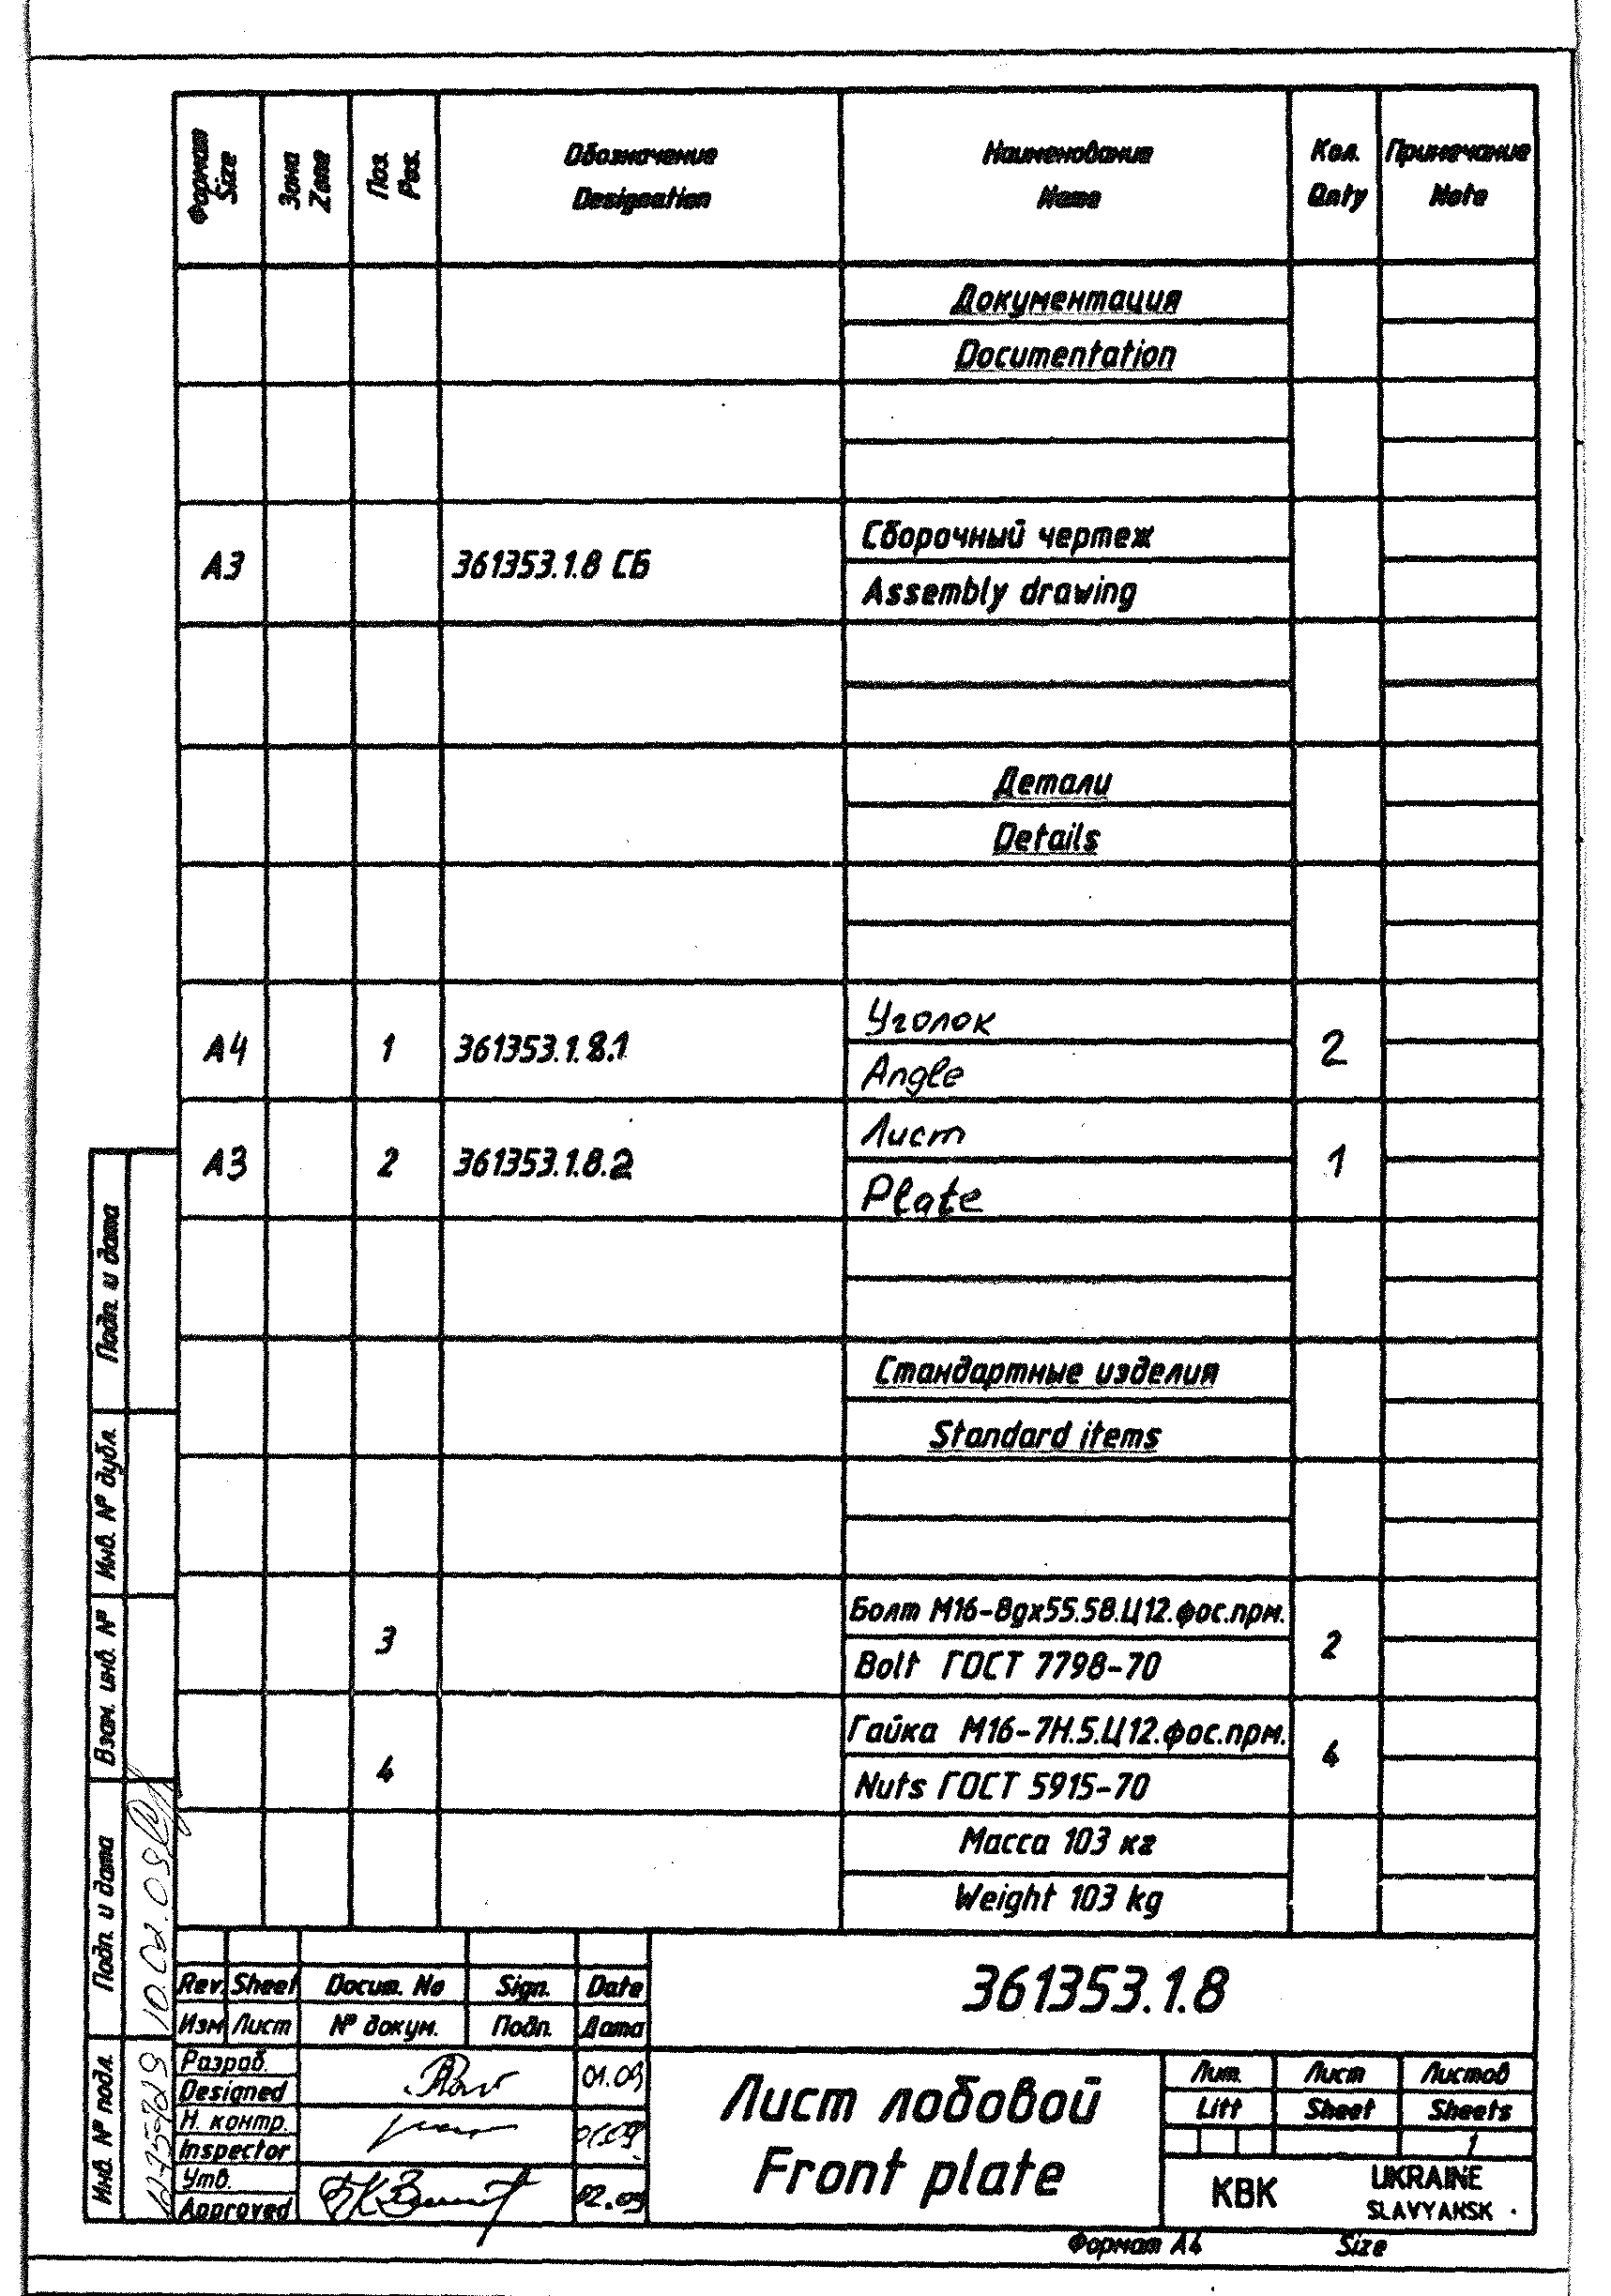 Формат
Size
Зона
Zone
Поз.
Pos.
Обозначение
Designation
Наименование
Name
Кол.
Qnty
Примечание
Note
Документация
Documentation
А3
361353.1.8 СБ
Сборочный чертеж
Assembly drawing
Детали
Details
А4
1
361353.1.8.1
Уголок
Angle
2
А3
2
361353.1.8.2
Лист
Plate
1
Стандартные изделия
Standard items
3
Болт М16-8gх55.58.Ц12.фос.прм.
Bolt ГОСТ 7798-70
2
4
Гайка М16-7Н.5.Ц12.фос.прм.
Nuts ГОСТ 5915-70
4
Масса 103 кг
Weight 103 kg
Подп. и дата
Инв. № дубл.
Взам. инв. №
Подп. и дата
Инв. № подл.
Rev. Sheet Docum. No Sign. Date
Изм Лист № докум. Подп. Дата
Разраб.
Designed
01.09
Н. контр.
Inspector
Утв.
Approved
02.09
361353.1.8
Лист лобовой
Front plate
Лит. Лист Листов
Litt Sheet Sheets
1
КВК
UKRAINE
SLAVYANSK
Формат А4 Size